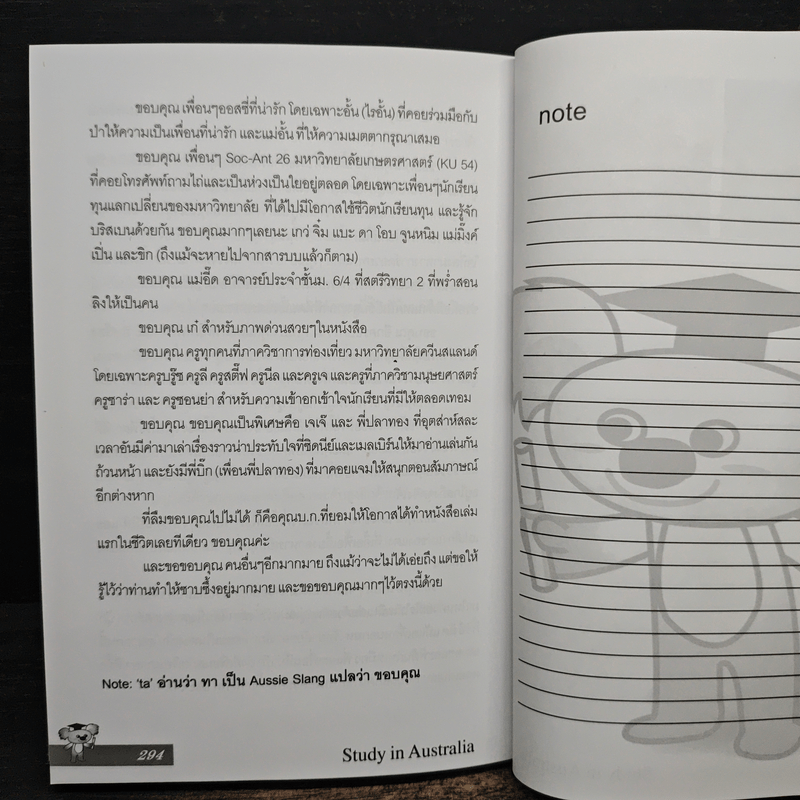 ขอบคุณ เพื่อนๆออสซี่ที่น่ารัก โดยเฉพาะอั้น (ไรอั้น) ที่คอยร่วมมือกับ
บำให้ความเป็นเพื่อนที่น่ารัก และแม่อั้น ที่ให้ความเมตตากรุณาเสมอ
ขอบคุณ เพื่อนๆ Soc-Ant 26 มหาวิทยาลัยเกษตรศาสตร์ (KU 54)
ที่คอยโทรศัพท์ถามไถ่และเป็นห่วงเป็นใยอยู่ตลอด โดยเฉพาะเพื่อนๆนักเรียน
ทุนแลกเปลี่ยนของมหาวิทยาลัย ที่ได้ไปมีโอกาสใช้ชีวิตนักเรียนทุน และรู้จัก
บริสเบนด้วยกัน ขอบคุณมากๆเลยนะ เกว๋ จิ๋ม แบะ ดา โอบ จูนหนิม แม่มิ๊งค์
เปิ่น และขิก (ถึงแม้จะหายไปจากสารบบแล้วก็ตาม)
ขอบคุณ แม่อี๊ด อาจารย์ประจำชั้นม. 6/4 ที่สตรีวิทยา 2 ที่พร่ำสอน
ลิงให้เป็นคน
ขอบคุณ เก๋ สำหรับภาพด่วนสวยๆในหนังสือ
ขอบคุณ ครูทุกคนที่ภาควิชาการท่องเที่ยว มหาวิทยาลัยควีนสแลนด์
โดยเฉพาะครูบรู๊ซ ครูลี ครูสตี๊ฟ ครูนีล และครูเจ และครูที่ภาควิชามนุษยศาสตร์
ครูซาร่า และ ครูซอนย่า สำหรับความเข้าอกเข้าใจนักเรียนที่มีให้ตลอดเทอม
ขอบคุณ ขอบคุณเป็นพิเศษคือ เจเจ๊ และ พี่ปลาทอง ที่อุตส่าห์สละ
เวลาอันมีค่ามาเล่าเรื่องราวน่าประทับใจที่ซิดนีย์และเมลเบิร์นให้มาอ่านเล่นกัน
ถ้วนหน้า และยังมีพี่บิ๊ก (เพื่อนพี่ปลาทอง) ที่มาคอยแจมให้สนุกตอนสัมภาษณ์
อีกต่างหาก
ที่ลืมขอบคุณไปไม่ได้ ก็คือคุณบ.ก.ที่ยอมให้โอกาสได้ทำหนังสือเล่ม
แรกในชีวิตเลยทีเดียว ขอบคุณค่ะ
และขอขอบคุณ คนอื่นๆอีกมากมาย ถึงแม้ว่าจะไม่ได้เอ่ยถึง แต่ขอให้
รู้ไว้ว่าท่านทำให้ซาบซึ้งอยู่มากมาย และขอขอบคุณมากๆไว้ตรงนี้ด้วย
Note: 'ta' อ่านว่า ทา เป็น Aussie Slang แปลว่า ขอบคุณ
294
Study in Australia
note